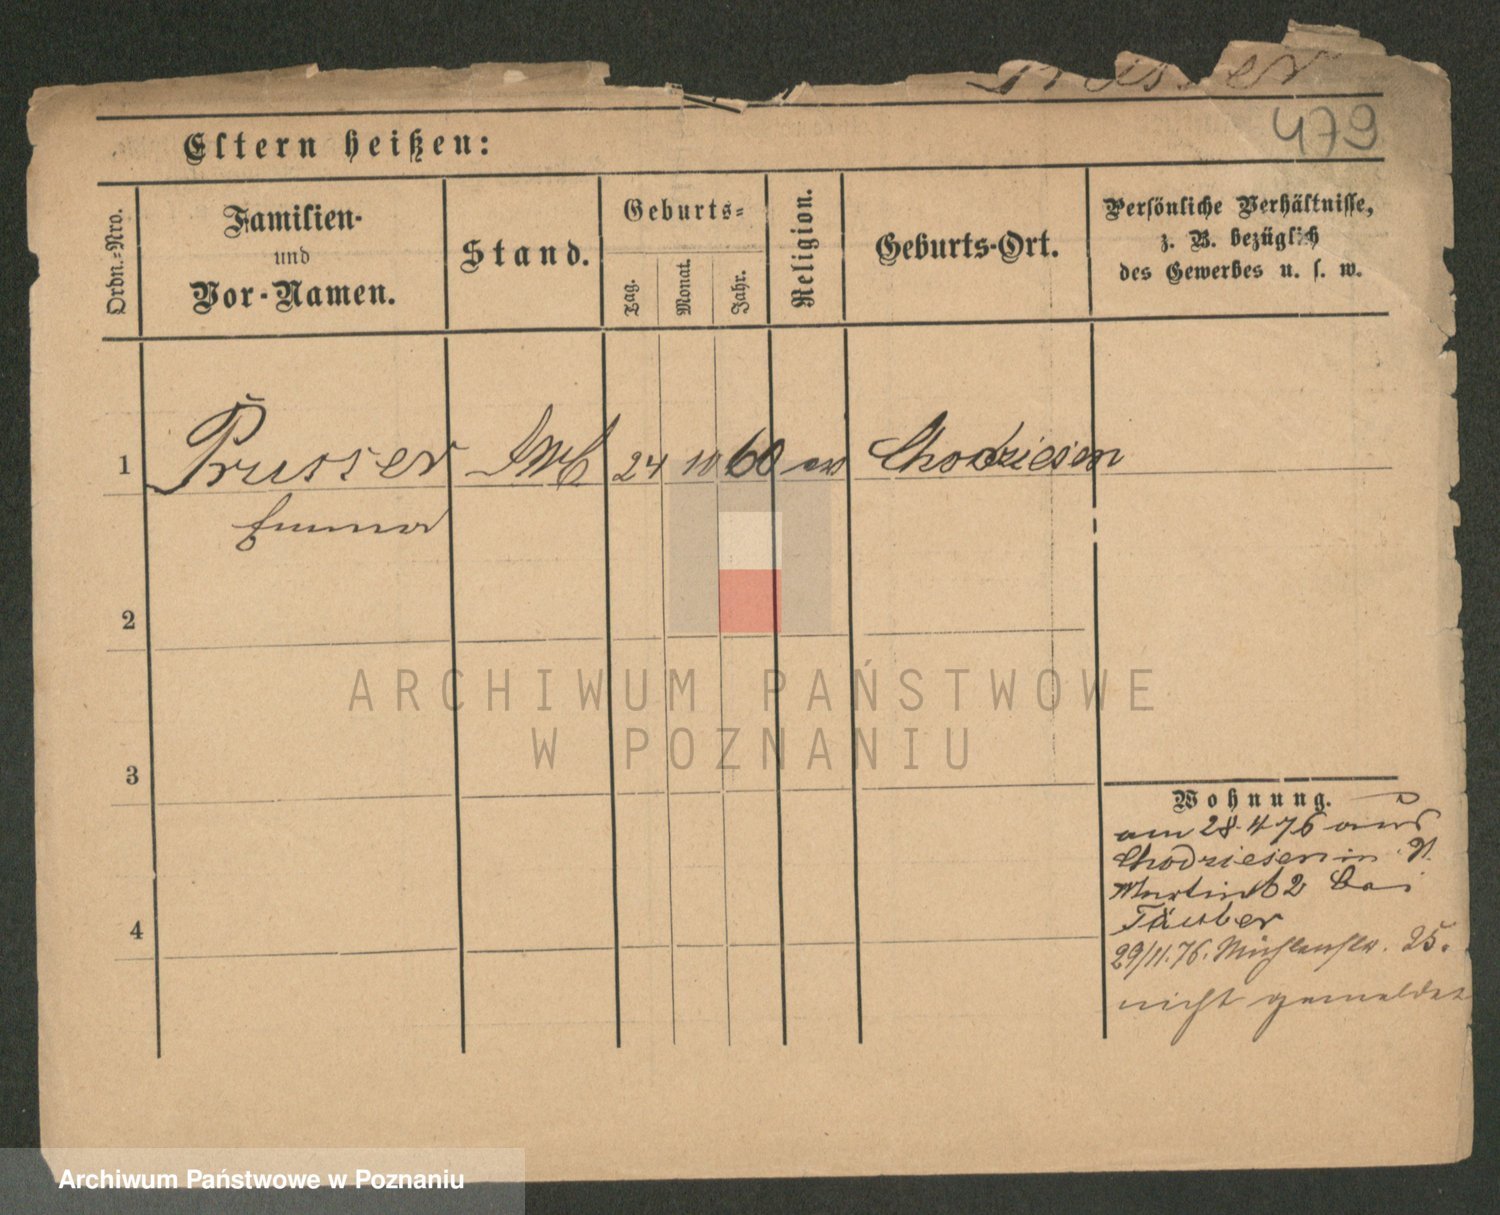 Prusser
479
Eltern heißen:
Ordn.-Nro.
Familien-
und
Vor-Namen.
Stand.
Geburts-
Tag.
Monat.
Jahr.
Religion.
Geburts-Ort.
Persönliche Verhältnisse,
z. B. bezüglich
des Gewerbes u. s. w.
1 Prusser 24 10 60 ev Chodziesen
Emma
2
3
4
Wohnung.
am 28.4.76 aus
Chodziesen in St.
Martin 62 bei
Täuber
29/11.76. Mühlenstr. 25.
nicht gemeldet
ARCHIWUM PAŃSTWOWE
W POZNANIU
Archiwum Państwowe w Poznaniu